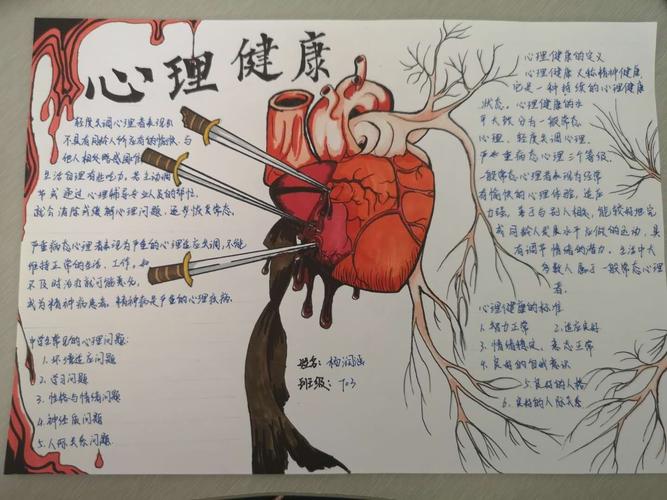 心理健康
轻度失调心理者表现为
不具有同龄人所应有的愉快,与
他人相处略感困难
生活自理有些吃力,若主动调
节或通过心理辅导专业人员的帮忙,
就会消除或缓解心理问题,逐步恢复常态。
严重病态心理者表现为严重的心理适应失调,不能
维持正常的生活、工作,如
不及时治疗就可能恶化,
成为精神病患者,精神病是严重的心理疾病。
中学生常见的心理问题:
1.环境适应问题
2.学习问题
3.性格与情绪问题
4.神经质问题
5.人际关系问题
姓名:杨涵
班级:703
心理健康的定义
心理健康又称精神健康,
它是一种持续的心理健康
状态。心理健康的水
平大致分为一般常态
心理、轻度失调心理、
严重病态心理三个等级。
一般常态心理者表现为经常
有愉快的心理体验,适应
力强,善于与别人相处,能较好地完
成同龄人发展水平应做的活动,具
有调节情绪的潜力。生活中大
多数人属于一般常态心理
者。
心理健康的标准
1.智力正常 2.适应良好
3.情绪稳定、表达正常
4.良好的自我意识
5.良好的人格
6.良好的人际关系